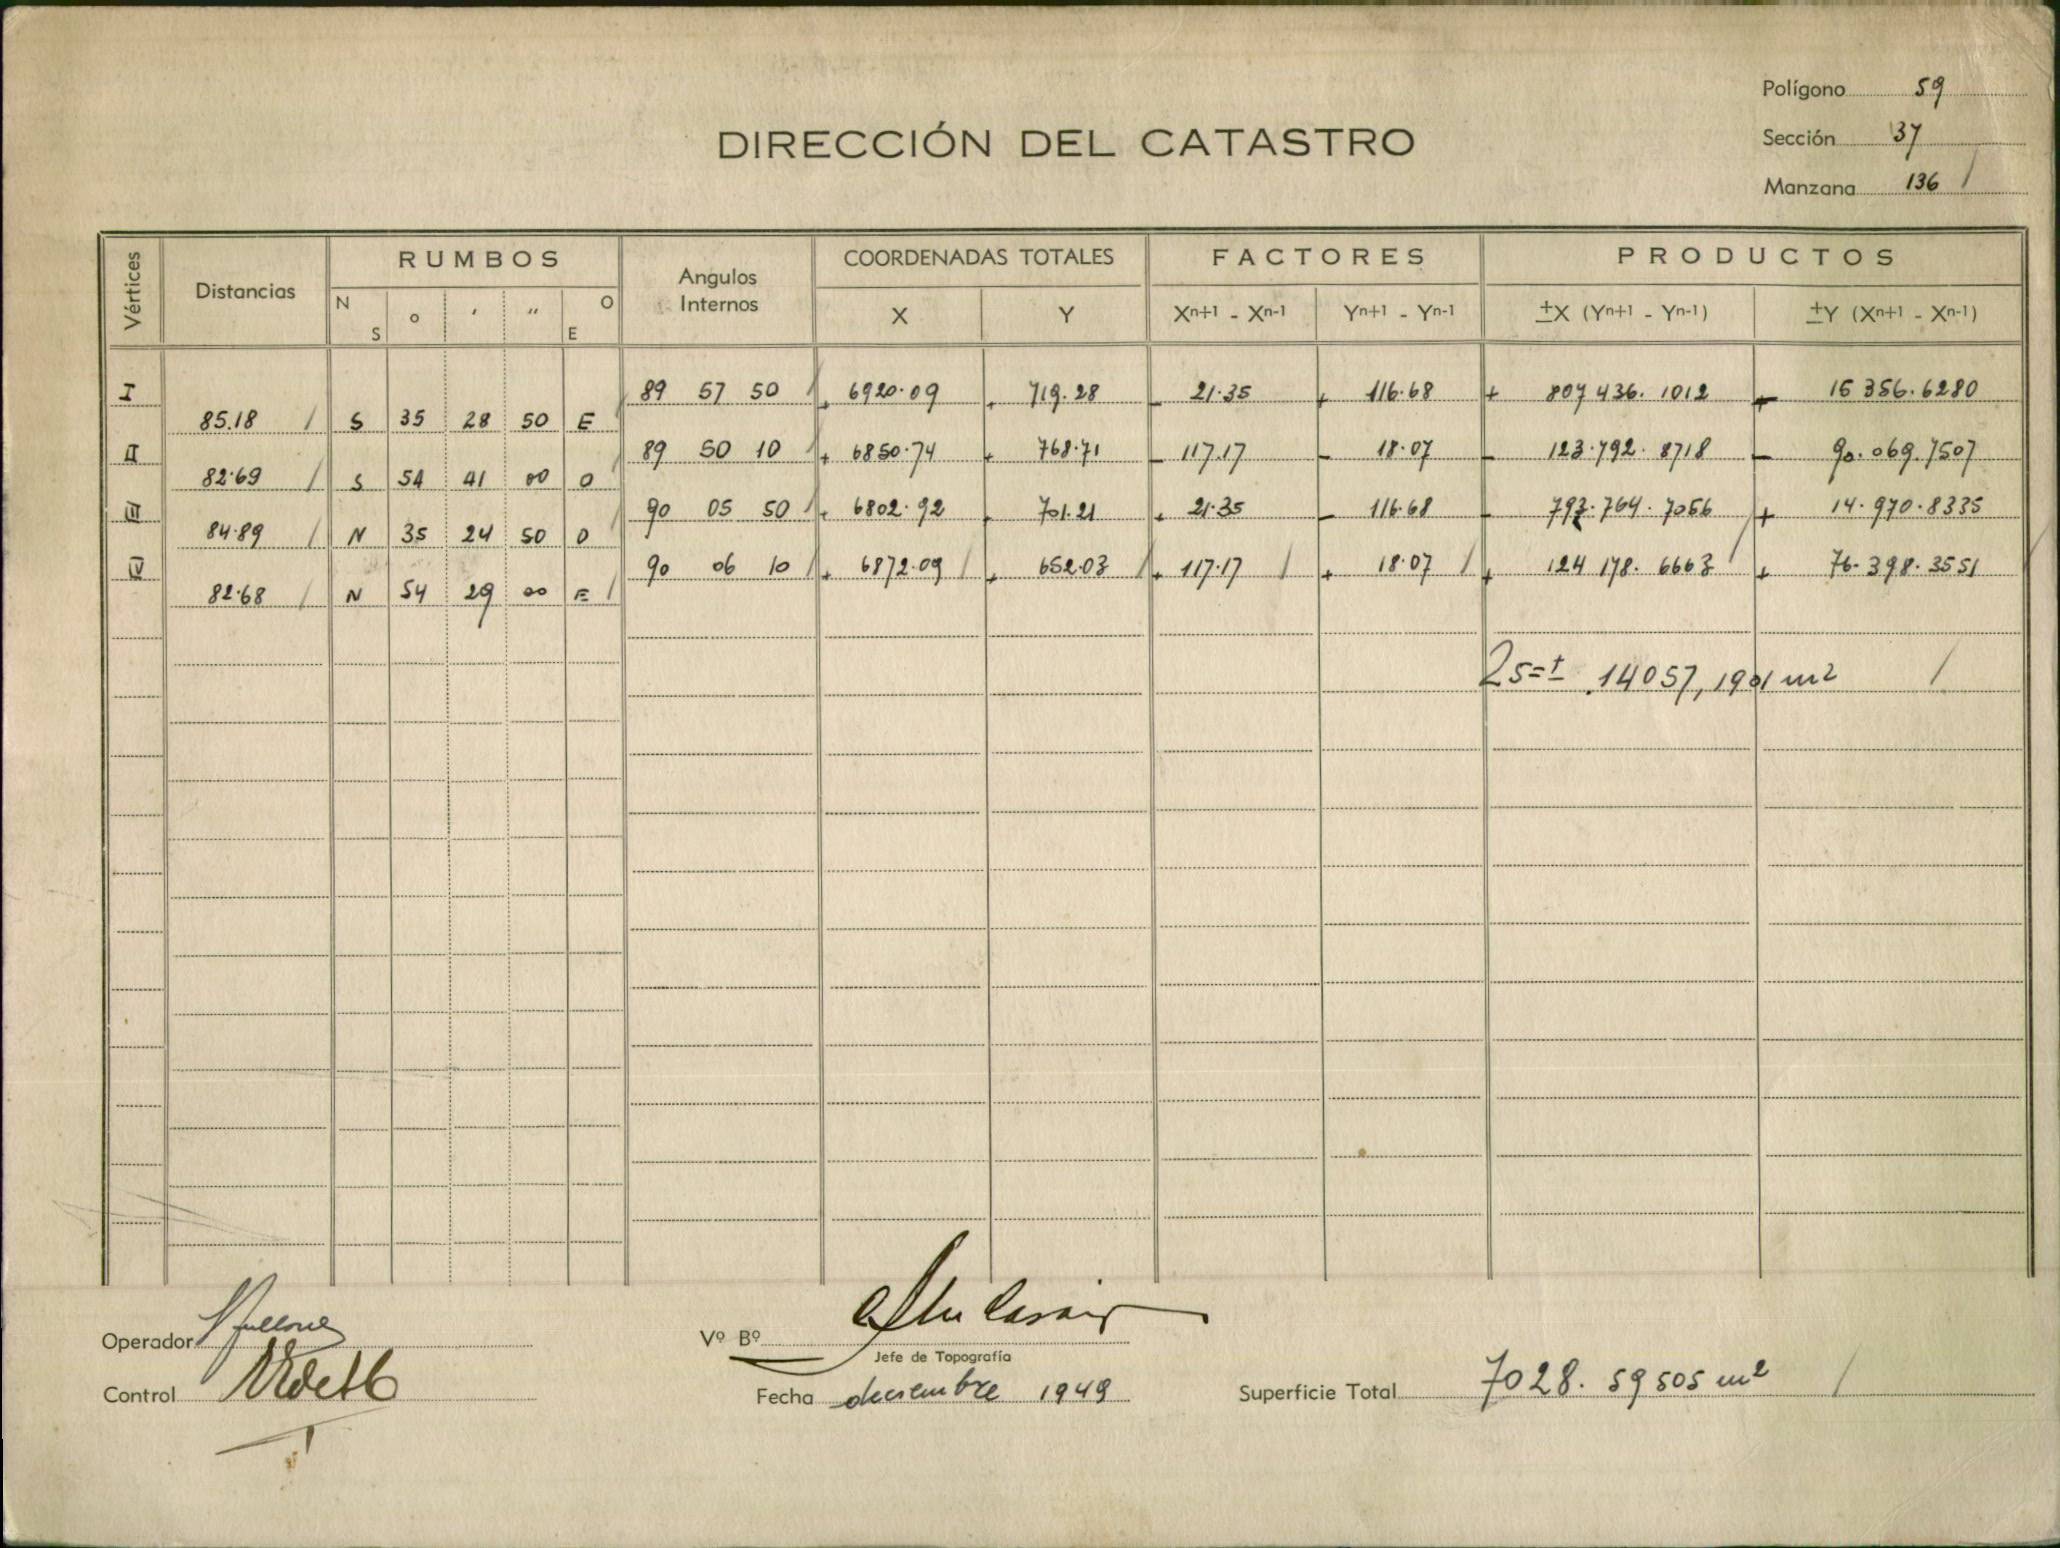 Polígono 59
Sección 37
Manzana 136
DIRECCIÓN DEL CATASTRO
Vértices Distancias RUMBOS Angulos Internos COORDENADAS TOTALES FACTORES PRODUCTOS
N S o ′ ″ O E X Y Xn+1 - Xn-1 Yn+1 - Yn-1 ±X (Yn+1 - Yn-1) ±Y (Xn+1 - Xn-1)
I 89 57 50 + 6920.09 + 719.28 - 21.35 + 116.68 + 807 436. 1012 + 15 356.6280
85.18 S 35 28 50 E
II 89 50 10 + 6850.74 + 768.71 - 117.17 - 18.07 - 123.792. 8718 - 90.069.7507
82.69 S 54 41 00 O
III 90 05 50 + 6802.92 + 701.21 + 21.35 - 116.68 - 793.764.7056 + 14.970.8335
84.89 N 35 24 50 O
IV 90 06 10 + 6872.09 + 652.03 + 117.17 + 18.07 + 124 178. 6663 + 76.398.3551
82.68 N 54 29 00 E
2S=± 14057,1901 m2
Operador
Vº Bº
Jefe de Topografía
Control
Fecha diciembre 1949
Superficie Total 7028. 59505 m2